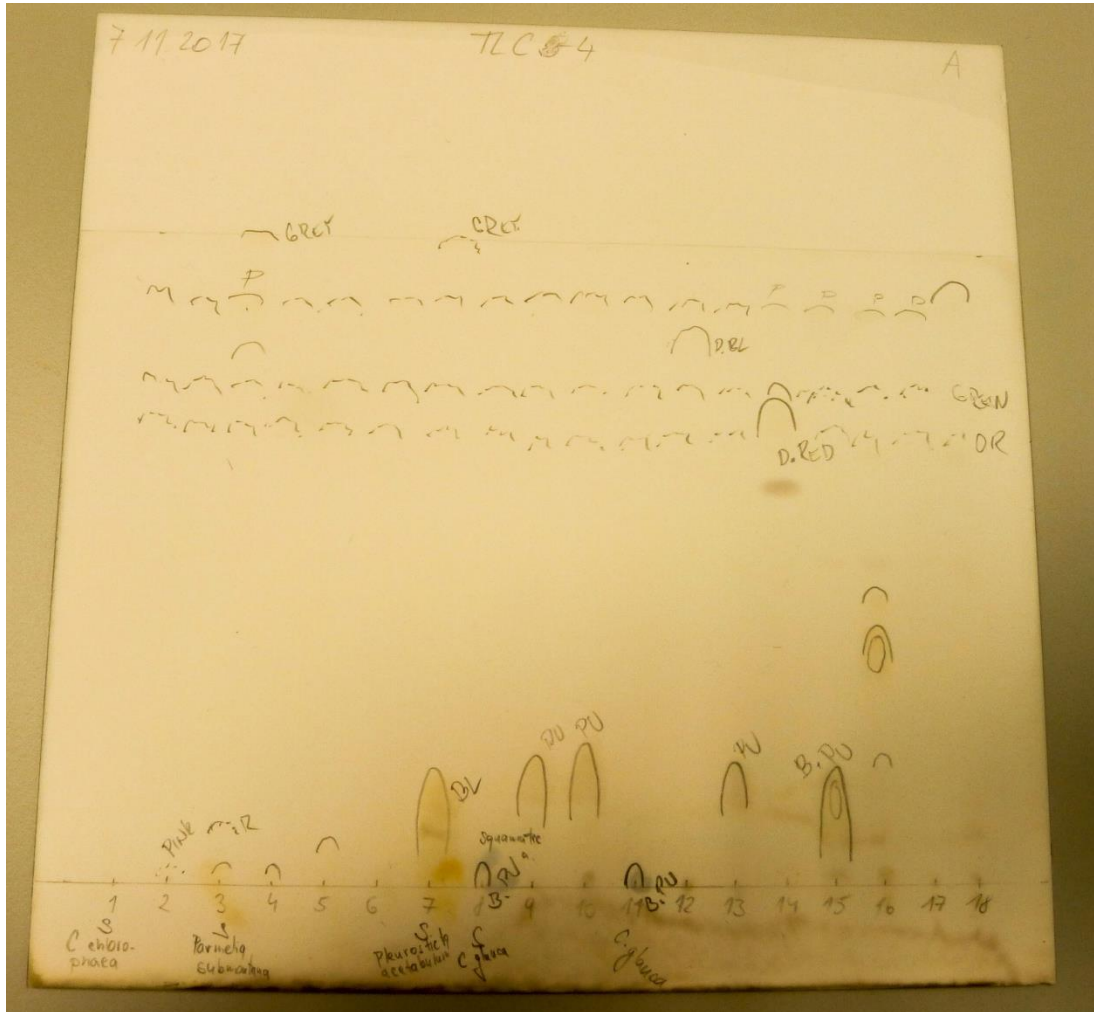 7 11 2017 TLC 4 A
GREY GREY
P P P P P
D.BL
GREEN
OR
D.RED
PU PU PU B.PU
BL
PINK R
Squamatic
a.
B.PU B.PU
1 2 3 4 5 6 7 8 9 10 11 12 13 14 15 16 17 18
S S S
C chloro-
phaea
Parmelia
submontana
Pleurosticta
acetabulum
C glauca
C. glauca